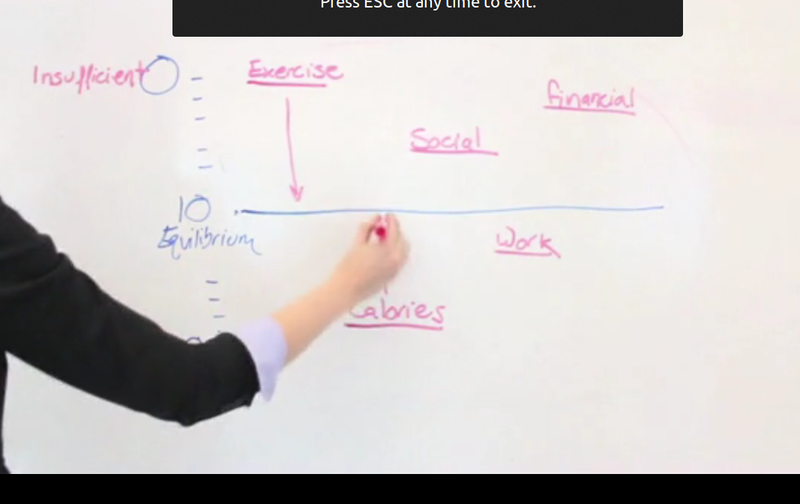 Press ESC at any time to exit.
Insufficient 0
Exercise
financial
Social
10
Equilibrium
Work
Calories